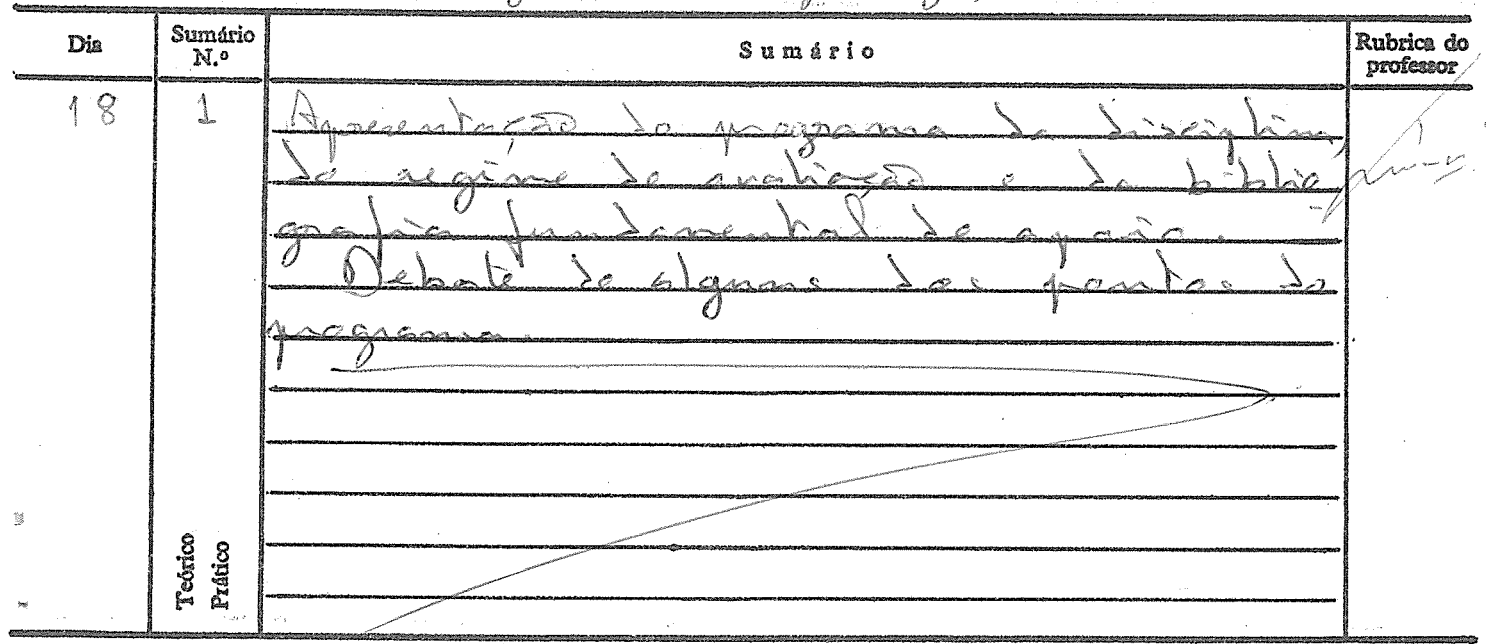 Dia
Sumário N.º
Sumário
Rubrica do professor
18
1
Apresentação do programa da disciplina,
do regime de avaliação e da biblio
grafia fundamental de apoio.
Debate de alguns dos pontos do
programa.
Teórico
Prático